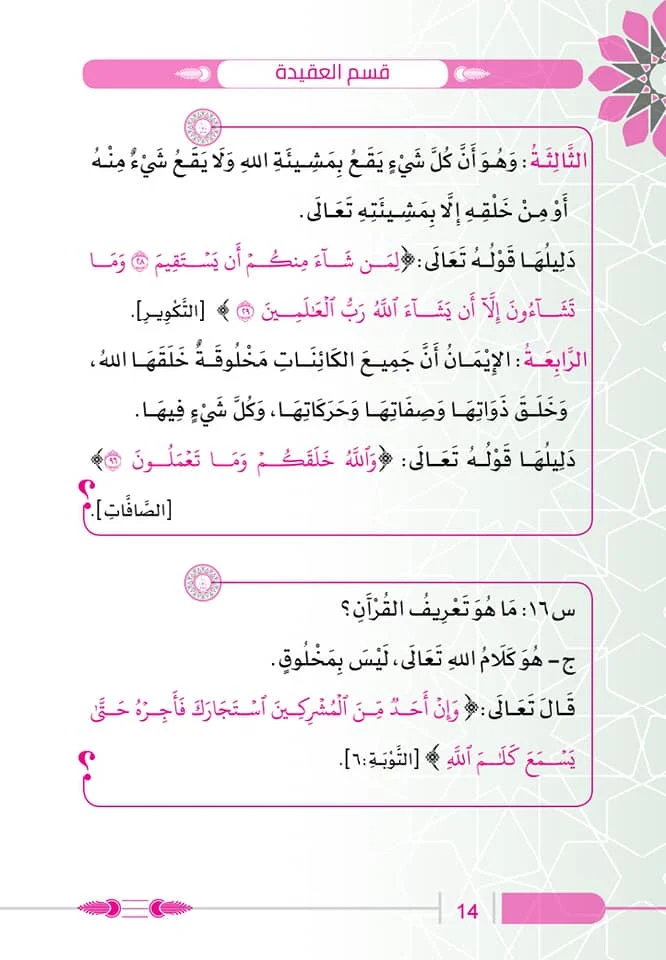 قسم العقيدة
الثَّالِثَةُ: وَهُوَ أَنَّ كُلَّ شَيْءٍ يَقَعُ بِمَشِيئَةِ اللهِ وَلَا يَقَعُ شَيْءٌ مِنْهُ
أَوْ مِنْ خَلْقِهِ إِلَّا بِمَشِيئَتِهِ تَعَالَى.
دَلِيلُهَا قَوْلُهُ تَعَالَى: ﴿لِمَن شَآءَ مِنكُمۡ أَن يَسۡتَقِيمَ ٢٨ وَمَا
تَشَآءُونَ إِلَّآ أَن يَشَآءَ ٱللَّهُ رَبُّ ٱلۡعَٰلَمِينَ ٢٩﴾ [التَّكْوِيرِ].
الرَّابِعَةُ: الإِيْمَانُ أَنَّ جَمِيعَ الكَائِنَاتِ مَخْلُوقَةٌ خَلَقَهَا اللهُ،
وَخَلَقَ ذَوَاتِهَا وَصِفَاتِهَا وَحَرَكَاتِهَا، وَكُلَّ شَيْءٍ فِيهَا.
دَلِيلُهَا قَوْلُهُ تَعَالَى: ﴿وَٱللَّهُ خَلَقَكُمۡ وَمَا تَعۡمَلُونَ ٩٦﴾
[الصَّافَّاتِ].
س١٦: مَا هُوَ تَعْرِيفُ القُرْآنِ؟
ج- هُوَ كَلَامُ اللهِ تَعَالَى، لَيْسَ بِمَخْلُوقٍ.
قَالَ تَعَالَى: ﴿وَإِنۡ أَحَدٞ مِّنَ ٱلۡمُشۡرِكِينَ ٱسۡتَجَارَكَ فَأَجِرۡهُ حَتَّىٰ
يَسۡمَعَ كَلَٰمَ ٱللَّهِ﴾ [التَّوْبَةِ:٦].
14